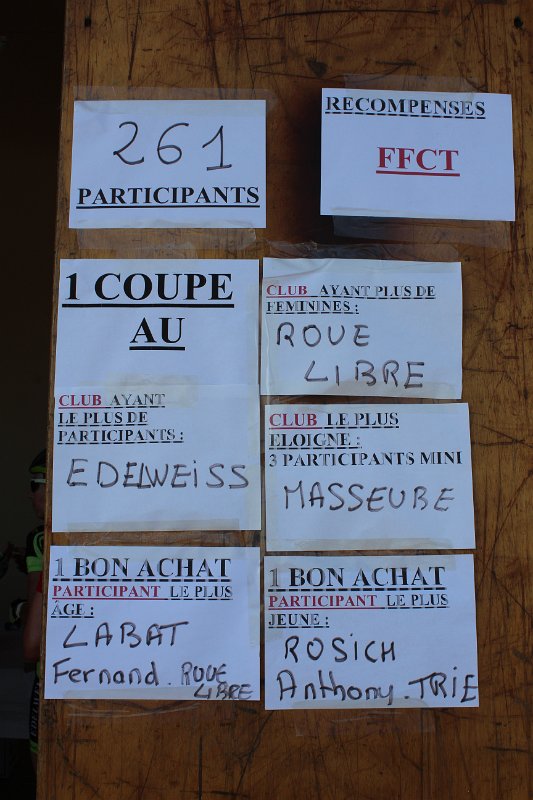 261
PARTICIPANTS
RECOMPENSES
FFCT
1 COUPE
AU
CLUB AYANT
LE PLUS DE
PARTICIPANTS :
EDELWEISS
CLUB AYANT PLUS DE
FEMININES :
ROUE
LIBRE
CLUB LE PLUS
ELOIGNE :
3 PARTICIPANTS MINI
MASSEUBE
1 BON ACHAT
PARTICIPANT LE PLUS
ÂGE :
LABAT
Fernand. ROUE
LIBRE
1 BON ACHAT
PARTICIPANT LE PLUS
JEUNE :
ROSICH
Anthony. TRIE